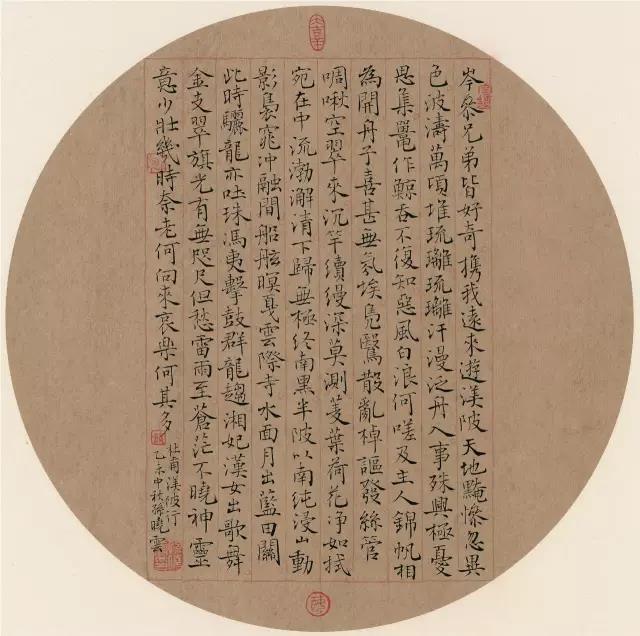 岑參兄弟皆好奇攜我遠來遊渼陂天地黤慘忽異
色波濤萬頃堆琉璃琉璃汗漫泛舟入事殊興極憂
思集鼉作鯨吞不復知惡風白浪何嗟及主人錦帆相
為開舟子喜甚無氛埃鳧鷖散亂棹謳發絲管
啁啾空翠來沉竿續縵深莫測菱葉荷花淨如拭
宛在中流渤澥清下歸無極終南黑半陂以南純浸山動
影裊窕沖融間船舷暝戛雲際寺水面月出藍田關
此時驪龍亦吐珠馮夷擊鼓群龍趨湘妃漢女出歌舞
金支翠旗光有無咫尺但愁雷雨至蒼茫不曉神靈
意少壯幾時奈老何向來哀樂何其多
杜甫渼陂行
乙未中秋孫曉雲